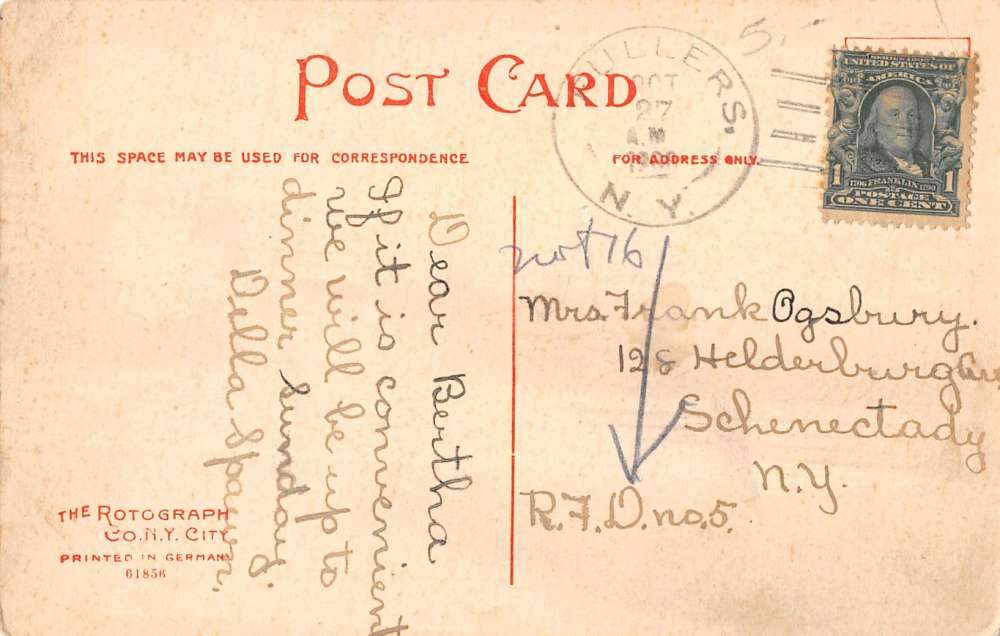 POST CARD
THIS SPACE MAY BE USED FOR CORRESPONDENCE
FOR ADDRESS ONLY.
FULLERS,
OCT
27
A.M
N. Y.
5
SERIES 1902
UNITED STATES OF
AMERICA
1 1
1706 FRANKLIN 1790
POSTAGE
ONE CENT
Dear Bertha
If it is convenient
we will be up to
dinner Sunday.
Della
not 16
Mrs. Frank Ogsbury.
128 Helderburg Ave
Schenectady
N.Y.
R.F.D. no. 5.
THE ROTOGRAPH
CO. N.Y. CITY
PRINTED IN GERMANY
61856